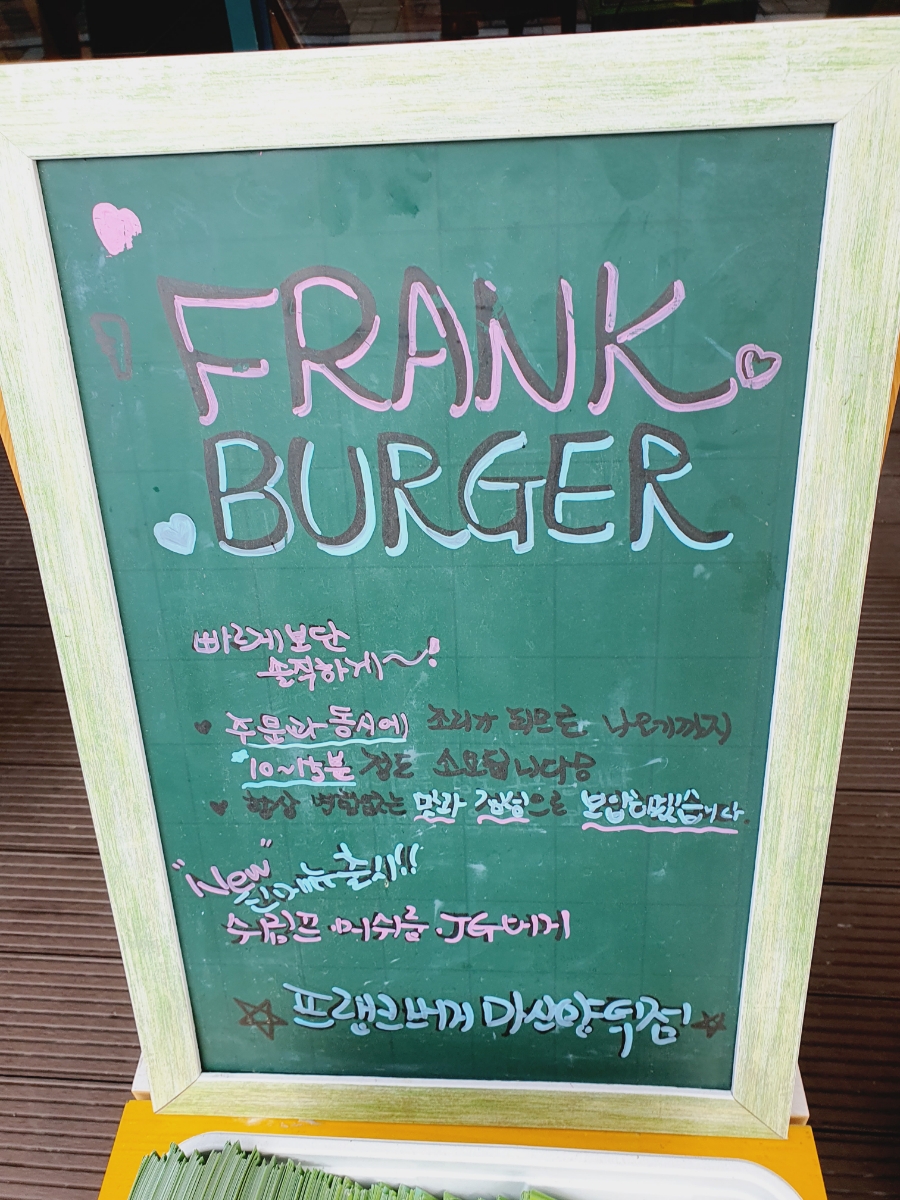 FRANK
BURGER
빠르게보단
솔직하게~!
주문과 동시에 조리가 되므로 나오기까지
10~15분 정도 소요됩니다
항상 변함없는 맛과 정성으로 보답하겠습니다.
"New" 신메뉴출시!!
쉬림프 머쉬룸 JG버거
프랭크버거 마산양덕점